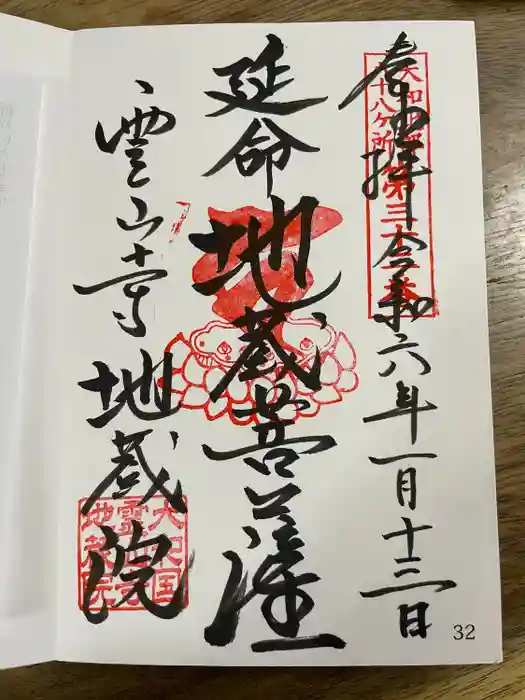 奉拝 令和六年一月十三日
大和北部
八十八ヶ所第三十二番
延命地蔵菩薩
霊山寺地蔵院
大和国
霊山寺
地蔵院
32